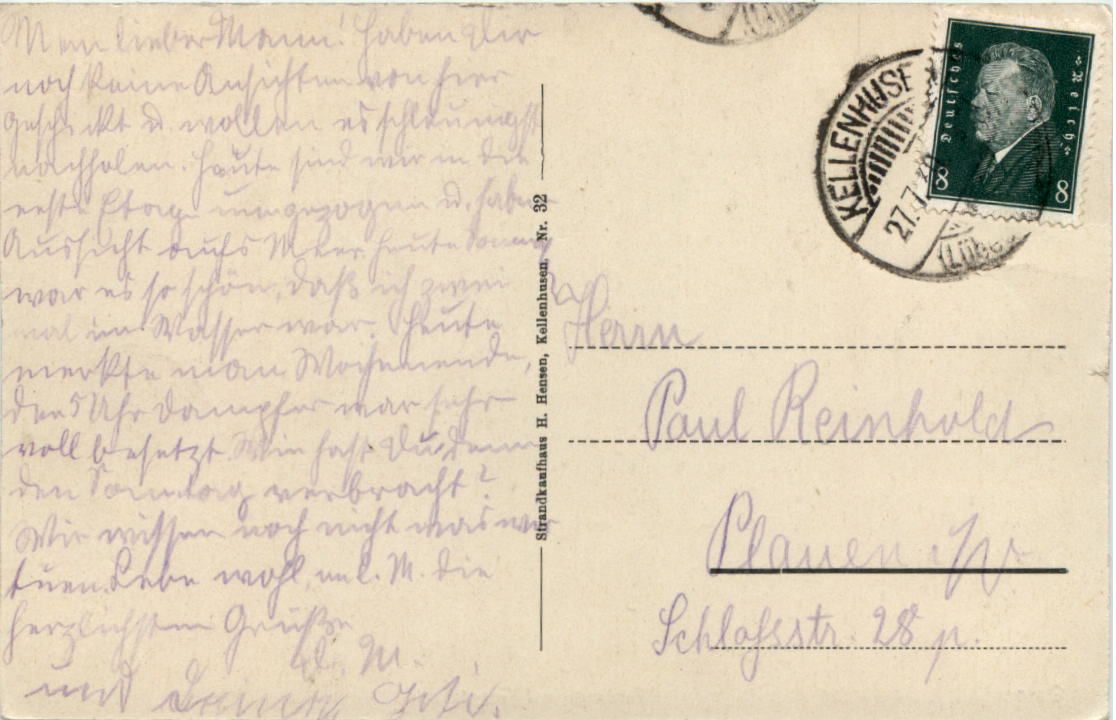 Mein lieber Mann! Haben Dir
noch keine Ansichten von hier
geschickt u. wollen es schleunigst
nachholen. Heute sind wir in die
erste Etage umgezogen u. haben
Aussicht aufs Meer heute Sonntag
war es so schön, daß ich zwei
mal im Wasser war. Heute
merkte man Wochenende,
der 5 Uhr Dampfer war sehr
voll besetzt. Wie hast Du denn
den Sonntag verbracht?
Wir wissen noch nicht was wir
tuen. Lebe wohl, m. l. M. die
herzlichsten Grüße
d. M.
und Deine
Strandkaufhaus H. Hensen, Kellenhusen, Nr. 32
KELLENHUSEN
27.7.
(LÜB
Deutsches
Reich
8
8
Herrn
Paul Reinhold
Plauen i/V.
Schlossstr. 28 p.